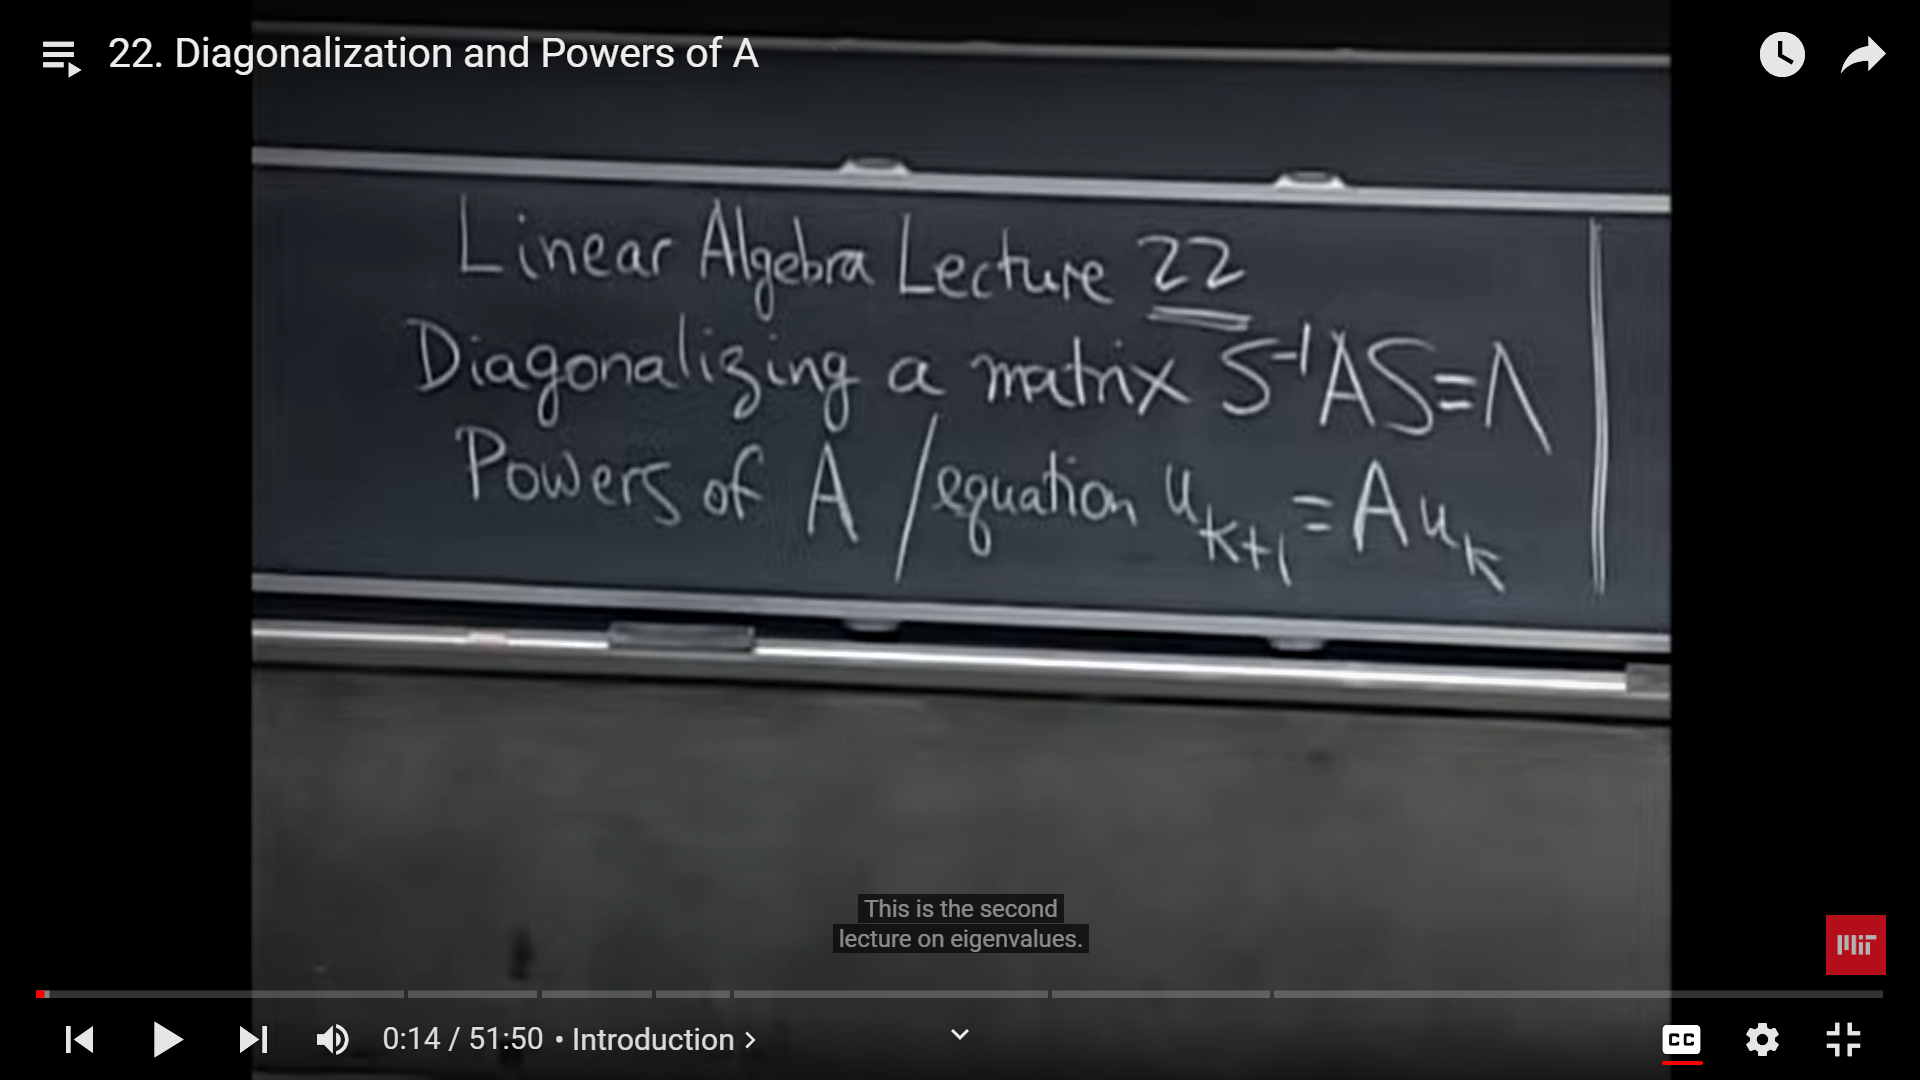 22. Diagonalization and Powers of A
Linear Algebra Lecture 22
Diagonalizing a matrix S⁻¹AS=Λ
Powers of A / equation u_{k+1} = A u_k
This is the second
lecture on eigenvalues.
MIT
0:14 / 51:50 • Introduction >
CC